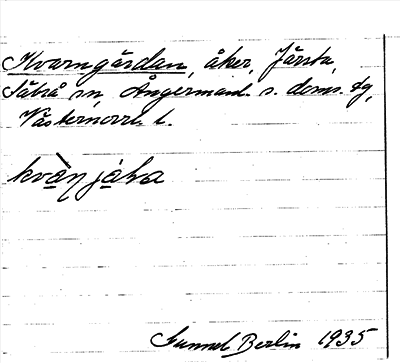 Kvarngärdan, åker, Järsta,
Säbrå sn, Ångermanl. s. doms. fg,
Västernorrl. l.
Gunnel Berlin 1935